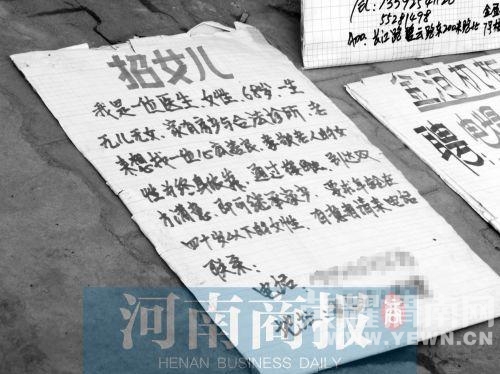 Tel: 13592541120
55281498
Add 长江路
招女儿
我是一位医生，女性、68岁一生
无儿无女、家有房产与合法诊所，老
来想找一位心底善良、孝敬老人的女
性为终身依靠，通过接吻，到达双
方满意，即可继承家产，要求年龄在
四十岁以下的女性，有意者请来电话
联系：
电话：
地址：
聘
河南商报
HENAN BUSINESS DAILY
WWW.YEWN.CN